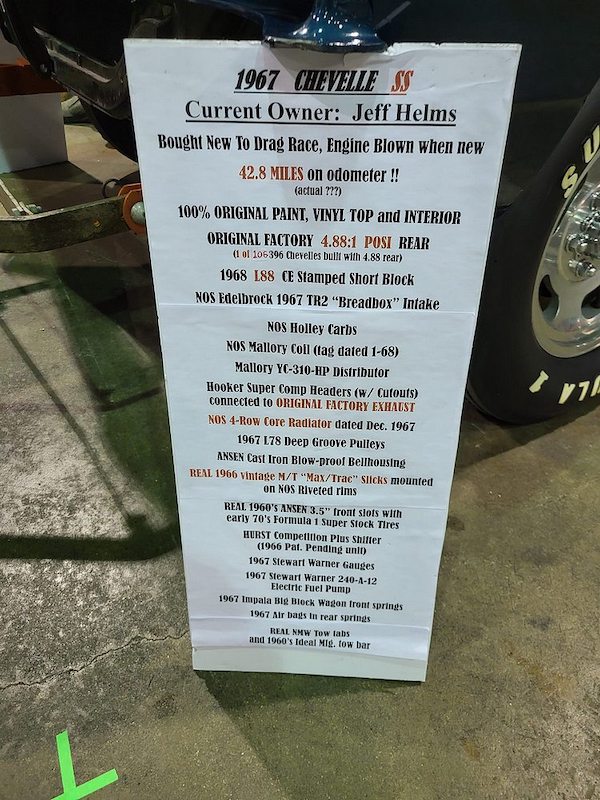 1967 CHEVELLE SS
Current Owner: Jeff Helms
Bought New To Drag Race, Engine Blown when new
42.8 MILES on odometer !!
(actual ???)
100% ORIGINAL PAINT, VINYL TOP and INTERIOR
ORIGINAL FACTORY 4.88:1 POSI REAR
(1 of 106 396 Chevelles built with 4.88 rear)
1968 L88 CE Stamped Short Block
NOS Edelbrock 1967 TR2 "Breadbox" Intake
NOS Holley Carbs
NOS Mallory Coil (tag dated 1-68)
Mallory YC-310-HP Distributor
Hooker Super Comp Headers (w/ Cutouts)
connected to ORIGINAL FACTORY EXHAUST
NOS 4-Row Core Radiator dated Dec. 1967
1967 L78 Deep Groove Pulleys
ANSEN Cast Iron Blow-proof Bellhousing
REAL 1966 vintage M/T "Max/Trac" Slicks mounted
on NOS Riveted rims
REAL 1960's ANSEN 3.5" front slots with
early 70's Formula 1 Super Stock Tires
HURST Competition Plus Shifter
(1966 Pat. Pending unit)
1967 Stewart Warner Gauges
1967 Stewart Warner 240-A-12
Electric Fuel Pump
1967 Impala Big Block Wagon front springs
1967 Air bags in rear springs
REAL NMW Tow tabs
and 1960's Ideal Mfg. tow bar
SU
ULA 1